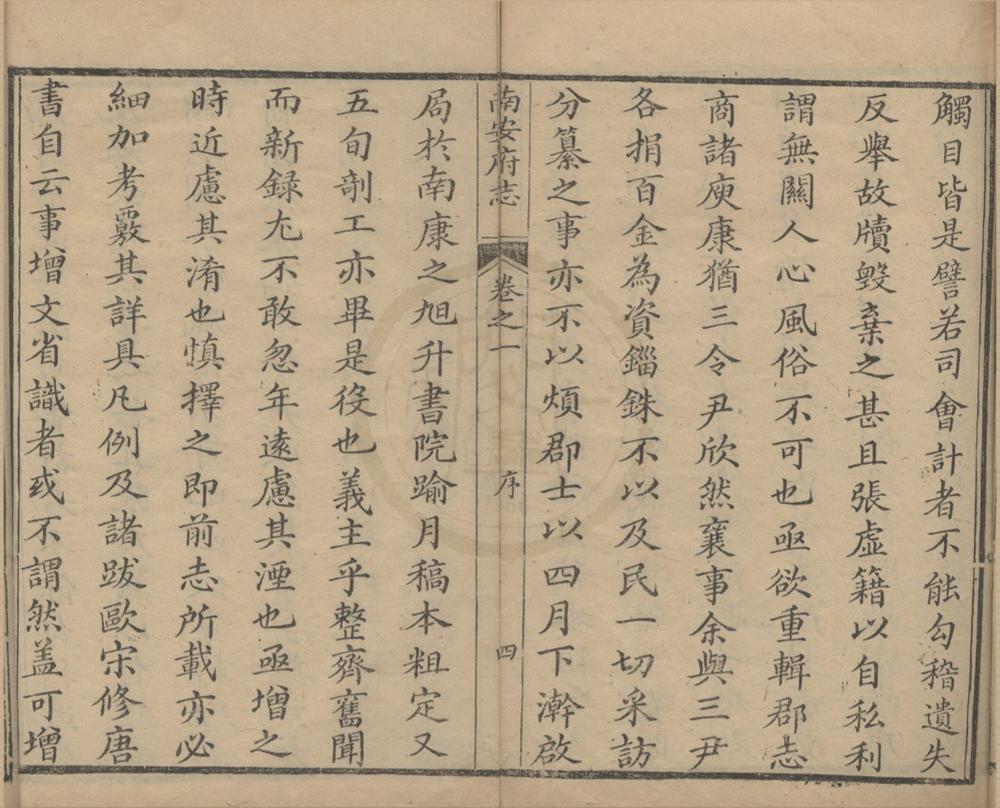 觸目皆是譬若司會計者不能勾稽遺失
反舉故牘毀棄之甚且張虛籍以自私利
謂無關人心風俗不可也亟欲重輯郡志
商諸庾康猶三令尹欣然襄事余與三尹
各捐百金為資錙銖不以及民一切采訪
分纂之事亦不以煩郡士以四月下澣啟
南安府志 卷之一 序 四
局於南康之旭升書院踰月稿本粗定又
五旬剞工亦畢是役也義主乎整齊舊聞
而新録尤不敢忽年遠慮其湮也亟增之
時近慮其淆也慎擇之即前志所載亦必
細加考覈其詳具凡例及諸跋歐宋修唐
書自云事增文省識者或不謂然盖可增